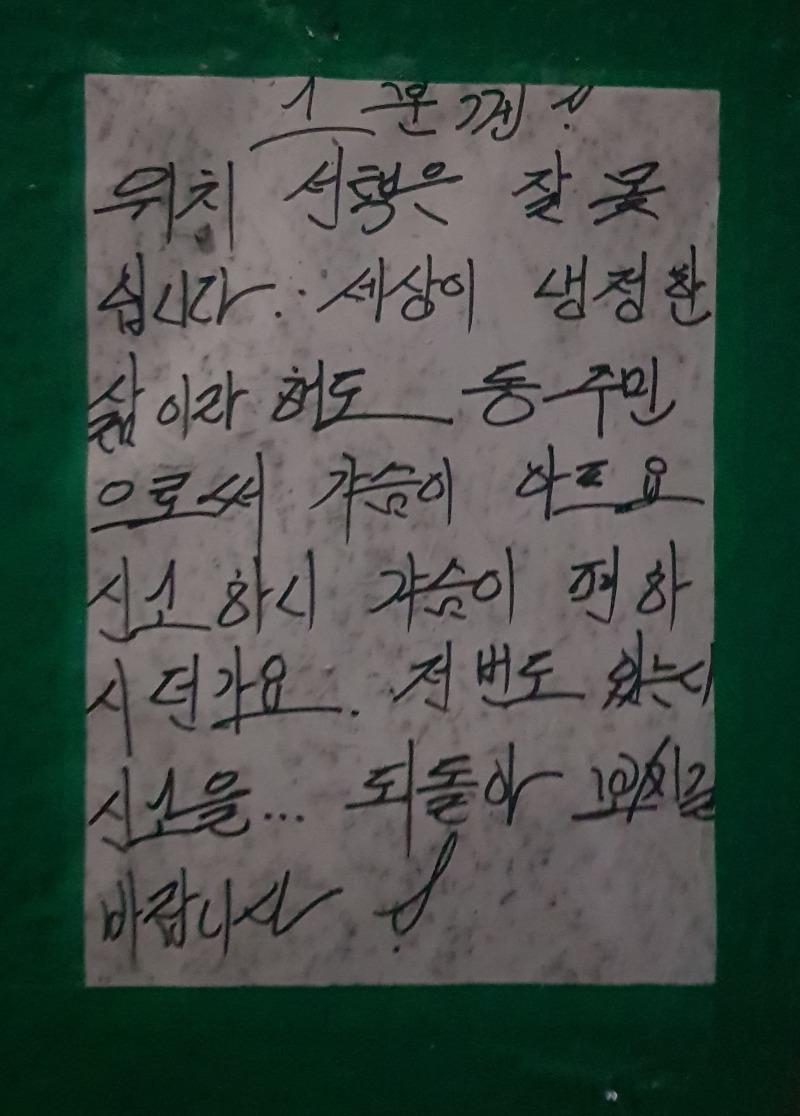 1 군께!
위치 선택은 잘못
쉽시다.. 세상이 냉정한
삶이라 허도 동주민
으로써 가슴이 아프요
신고하시 가슴이 편하
시던가요. 전번도 있는데
신고을... 되돌아 보시길
바랍니다!